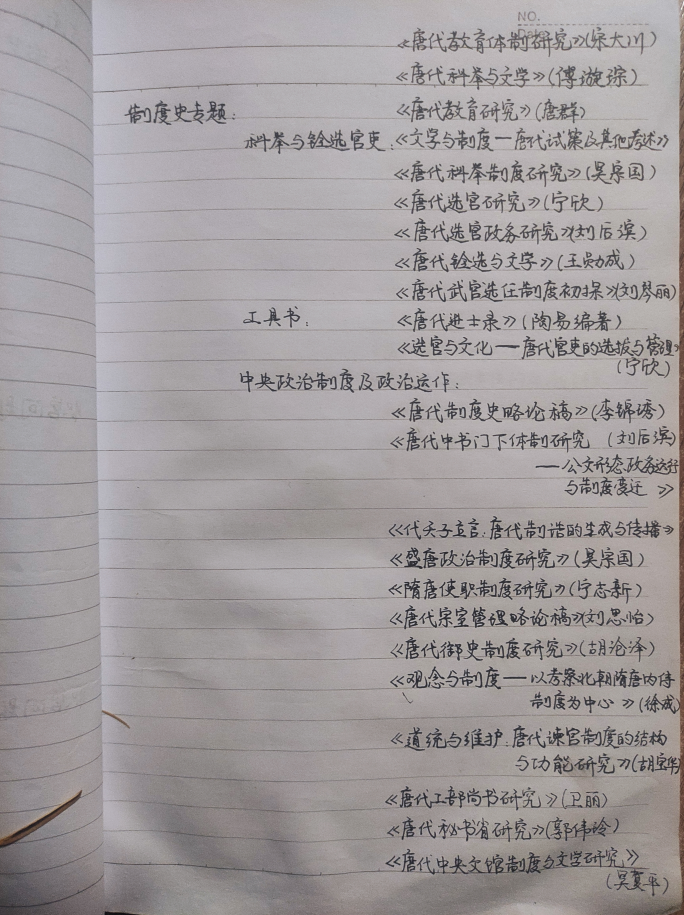 NO.
Date
《唐代教育体制研究》(宋大川)
《唐代科举与文学》(傅璇琮)
制度史专题:
《唐代教育研究》(唐群)
科举与铨选官吏:《文学与制度—唐代试策及其他考述》
《唐代科举制度研究》(吴宗国)
《唐代选官研究》(宁欣)
《唐代选官政务研究》(刘后滨)
《唐代铨选与文学》(王勋成)
《唐代武官选任制度初探》(刘琴丽)
工具书:
《唐代进士录》(陶易编著)
《选官与文化—唐代官吏的选拔与管理》
(宁欣)
中央政治制度及政治运作:
《唐代制度史略论稿》(李锦琇)
《唐代中书门下体制研究 (刘后滨)
—公文形态、政务运行
与制度变迁》
《代天子立言:唐代制诰的生成与传播》
《盛唐政治制度研究》(吴宗国)
《隋唐使职制度研究》(宁志新)
《唐代宗室管理略论稿》(刘思怡)
《唐代御史制度研究》(胡沧泽)
《观念与制度—以考察北朝隋唐内侍
制度为中心》(徐成)
《道统与维护:唐代谏官制度的结构
与功能研究》(胡宝华)
《唐代工部尚书研究》(卫丽)
《唐代秘书省研究》(郭伟玲)
《唐代中央文馆制度与文学研究》
(吴夏平)